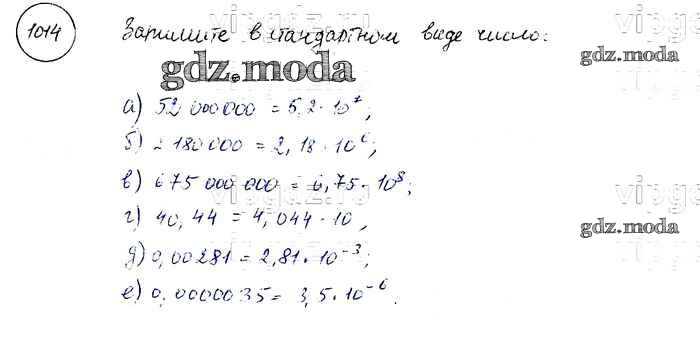 1014 Запишите в стандартном виде число:
gdz.moda
а) 52 000000 = 5,2 · 10⁷;
б) 2 180 000 = 2,18 · 10⁶;
в) 675 000 000 = 6,75 · 10⁸;
г) 40,44 = 4,044 · 10,
д) 0,00281 = 2,81 · 10⁻³;
е) 0,0000035 = 3,5 · 10⁻⁶.
gdz.moda
gdz.moda